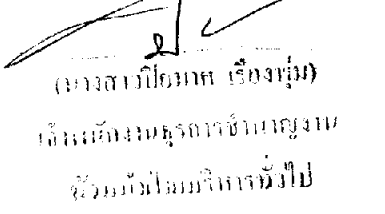 (นางสาวปิยมาศ เรืองพุ่ม)
เจ้าพนักงานธุรการชำนาญงาน
หัวหน้าฝ่ายบริหารทั่วไป